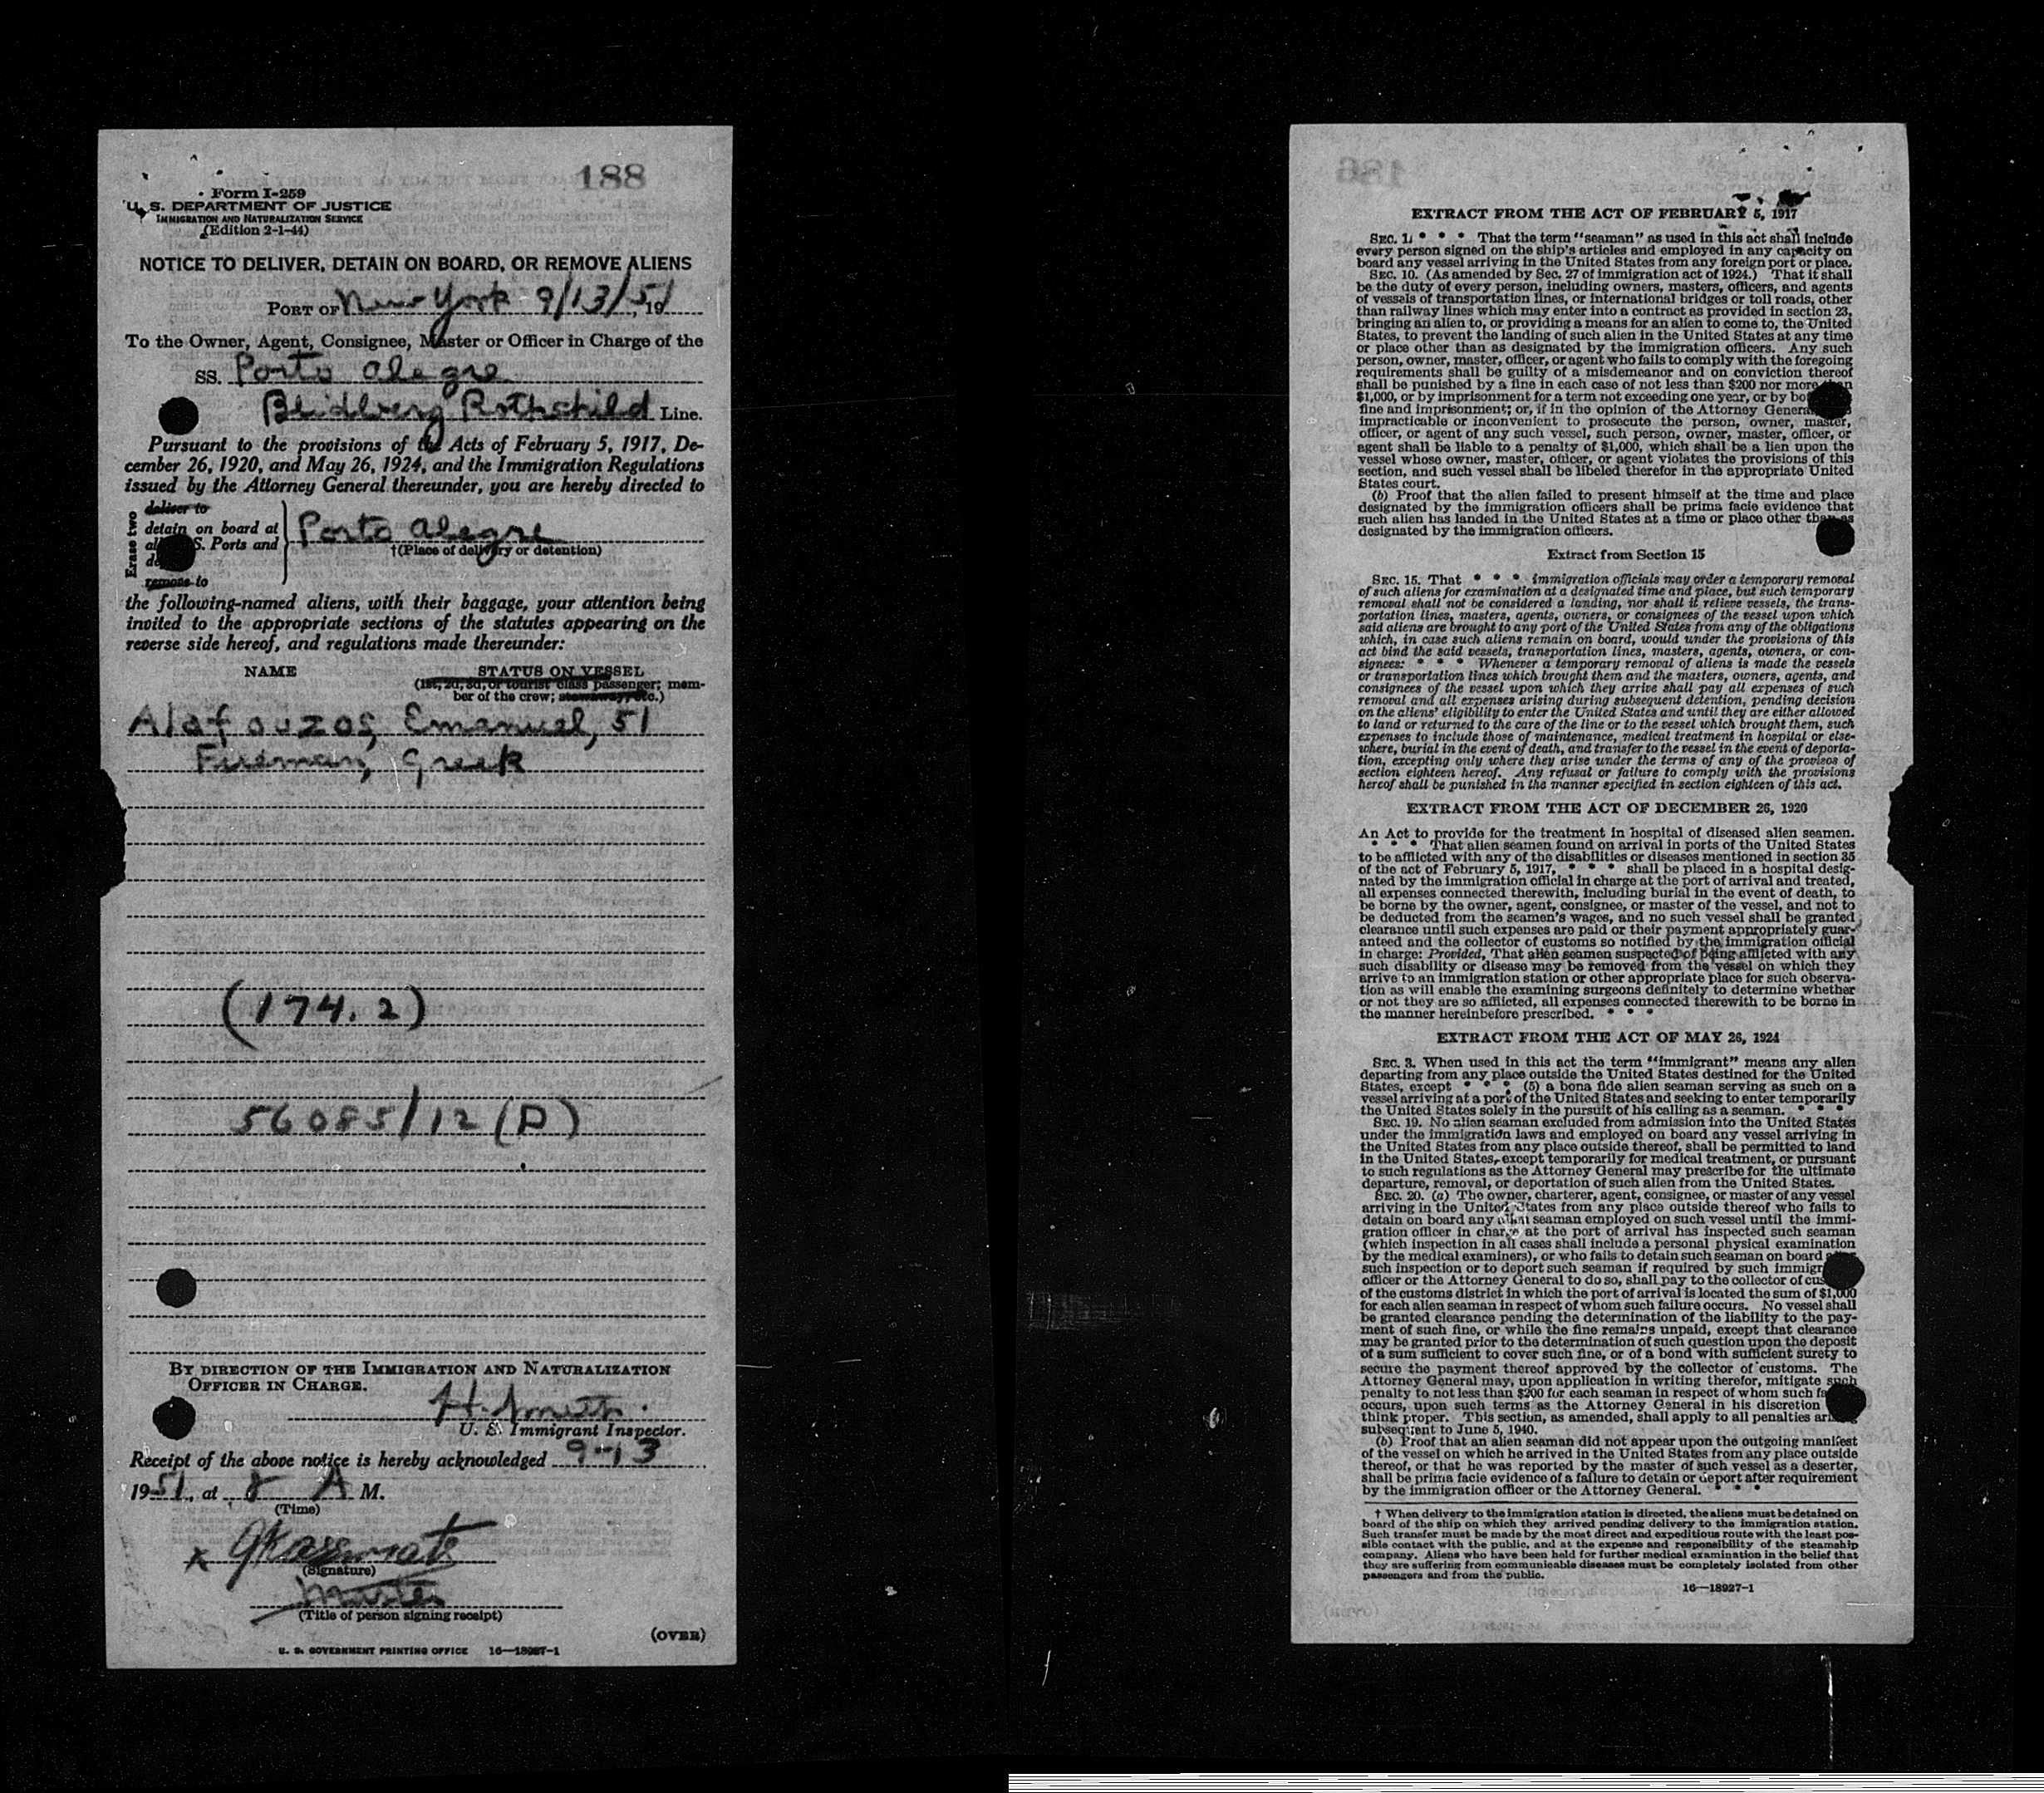 188
Form I-259
U. S. DEPARTMENT OF JUSTICE
IMMIGRATION AND NATURALIZATION SERVICE
(Edition 2-1-44)
NOTICE TO DELIVER, DETAIN ON BOARD, OR REMOVE ALIENS
PORT OF New York 9/13/51, 19
To the Owner, Agent, Consignee, Master or Officer in Charge of the
SS. Porto Alegre
Blidberg Rothchild Line.
Pursuant to the provisions of the Acts of February 5, 1917, De-
cember 26, 1920, and May 26, 1924, and the Immigration Regulations
issued by the Attorney General thereunder, you are hereby directed to
Erase two
deliver to
detain on board at
S. Ports and
remove to
Porto Alegre
†(Place of delivery or detention)
the following-named aliens, with their baggage, your attention being
invited to the appropriate sections of the statutes appearing on the
reverse side hereof, and regulations made thereunder:
NAME STATUS ON VESSEL
(1st, 2d, 3d, or tourist class passenger; mem-
ber of the crew; stowaway, etc.)
Alafouzos, Emanuel, 51
Fireman, Greek
(174.2)
56085/12 (D)
BY DIRECTION OF THE IMMIGRATION AND NATURALIZATION
OFFICER IN CHARGE.
H. Smith.
U. S. Immigrant Inspector.
Receipt of the above notice is hereby acknowledged 9-13
1951, at 8 A M.
(Time)
x
(Signature)
Master
(Title of person signing receipt)
(OVER)
U. S. GOVERNMENT PRINTING OFFICE 16—18927-1
186
EXTRACT FROM THE ACT OF FEBRUARY 5, 1917
SEC. 1. * * * That the term "seaman" as used in this act shall include
every person signed on the ship's articles and employed in any capacity on
board any vessel arriving in the United States from any foreign port or place.
SEC. 10. (As amended by Sec. 27 of immigration act of 1924.) That it shall
be the duty of every person, including owners, masters, officers, and agents
of vessels of transportation lines, or international bridges or toll roads, other
than railway lines which may enter into a contract as provided in section 23,
bringing an alien to, or providing a means for an alien to come to, the United
States, to prevent the landing of such alien in the United States at any time
or place other than as designated by the immigration officers. Any such
person, owner, master, officer, or agent who fails to comply with the foregoing
requirements shall be guilty of a misdemeanor and on conviction thereof
shall be punished by a fine in each case of not less than $200 nor more than
$1,000, or by imprisonment for a term not exceeding one year, or by bo
fine and imprisonment; or, if in the opinion of the Attorney General
impracticable or inconvenient to prosecute the person, owner, master,
officer, or agent of any such vessel, such person, owner, master, officer, or
agent shall be liable to a penalty of $1,000, which shall be a lien upon the
vessel whose owner, master, officer, or agent violates the provisions of this
section, and such vessel shall be libeled therefor in the appropriate United
States court.
(b) Proof that the alien failed to present himself at the time and place
designated by the immigration officers shall be prima facie evidence that
such alien has landed in the United States at a time or place other than as
designated by the immigration officers.
Extract from Section 15
SEC. 15. That * * * immigration officials may order a temporary removal
of such aliens for examination at a designated time and place, but such temporary
removal shall not be considered a landing, nor shall it relieve vessels, the trans-
portation lines, masters, agents, owners, or consignees of the vessel upon which
said aliens are brought to any port of the United States from any of the obligations
which, in case such aliens remain on board, would under the provisions of this
act bind the said vessels, transportation lines, masters, agents, owners, or con-
signees: * * * Whenever a temporary removal of aliens is made the vessels
or transportation lines which brought them and the masters, owners, agents, and
consignees of the vessel upon which they arrive shall pay all expenses of such
removal and all expenses arising during subsequent detention, pending decision
on the aliens' eligibility to enter the United States and until they are either allowed
to land or returned to the care of the line or to the vessel which brought them, such
expenses to include those of maintenance, medical treatment in hospital or else-
where, burial in the event of death, and transfer to the vessel in the event of deporta-
tion, excepting only where they arise under the terms of any of the provisos of
section eighteen hereof. Any refusal or failure to comply with the provisions
hereof shall be punished in the manner specified in section eighteen of this act.
EXTRACT FROM THE ACT OF DECEMBER 26, 1920
An Act to provide for the treatment in hospital of diseased alien seamen.
* * * That alien seamen found on arrival in ports of the United States
to be afflicted with any of the disabilities or diseases mentioned in section 35
of the act of February 5, 1917, * * * shall be placed in a hospital desig-
nated by the immigration official in charge at the port of arrival and treated,
all expenses connected therewith, including burial in the event of death, to
be borne by the owner, agent, consignee, or master of the vessel, and not to
be deducted from the seamen's wages, and no such vessel shall be granted
clearance until such expenses are paid or their payment appropriately guar-
anteed and the collector of customs so notified by the immigration official
in charge: Provided, That alien seamen suspected of being afflicted with any
such disability or disease may be removed from the vessel on which they
arrive to an immigration station or other appropriate place for such observa-
tion as will enable the examining surgeons definitely to determine whether
or not they are so afflicted, all expenses connected therewith to be borne in
the manner hereinbefore prescribed. * * *
EXTRACT FROM THE ACT OF MAY 26, 1924
SEC. 3. When used in this act the term "immigrant" means any alien
departing from any place outside the United States destined for the United
States, except * * * (5) a bona fide alien seaman serving as such on a
vessel arriving at a port of the United States and seeking to enter temporarily
the United States solely in the pursuit of his calling as a seaman. * * *
SEC. 19. No alien seaman excluded from admission into the United States
under the immigration laws and employed on board any vessel arriving in
the United States from any place outside thereof, shall be permitted to land
in the United States, except temporarily for medical treatment, or pursuant
to such regulations as the Attorney General may prescribe for the ultimate
departure, removal, or deportation of such alien from the United States.
SEC. 20. (a) The owner, charterer, agent, consignee, or master of any vessel
arriving in the United States from any place outside thereof who fails to
detain on board any alien seaman employed on such vessel until the immi-
gration officer in charge at the port of arrival has inspected such seaman
(which inspection in all cases shall include a personal physical examination
by the medical examiners), or who fails to detain such seaman on board
such inspection or to deport such seaman if required by such immigr
officer or the Attorney General to do so, shall pay to the collector of cus
of the customs district in which the port of arrival is located the sum of $1,000
for each alien seaman in respect of whom such failure occurs. No vessel shall
be granted clearance pending the determination of the liability to the pay-
ment of such fine, or while the fine remains unpaid, except that clearance
may be granted prior to the determination of such question upon the deposit
of a sum sufficient to cover such fine, or of a bond with sufficient surety to
secure the payment thereof approved by the collector of customs. The
Attorney General may, upon application in writing therefor, mitigate such
penalty to not less than $200 for each seaman in respect of whom such fa
occurs, upon such terms as the Attorney General in his discretion
think proper. This section, as amended, shall apply to all penalties ari
subsequent to June 5, 1940.
(b) Proof that an alien seaman did not appear upon the outgoing manifest
of the vessel on which he arrived in the United States from any place outside
thereof, or that he was reported by the master of such vessel as a deserter,
shall be prima facie evidence of a failure to detain or deport after requirement
by the immigration officer or the Attorney General. * * *
† When delivery to the immigration station is directed, the aliens must be detained on
board of the ship on which they arrived pending delivery to the immigration station.
Such transfer must be made by the most direct and expeditious route with the least pos-
sible contact with the public, and at the expense and responsibility of the steamship
company. Aliens who have been held for further medical examination in the belief that
they are suffering from communicable diseases must be completely isolated from other
passengers and from the public.
16—18927-1